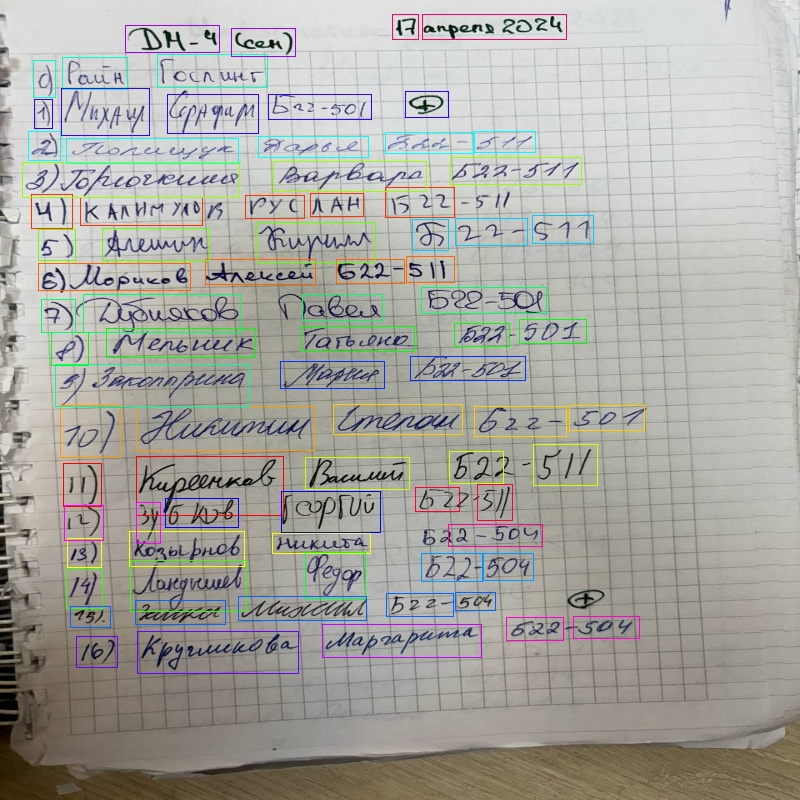 DM-4 (сем) 17 апреля 2024
0) Райн Гослинг
1) Михаил Серафим Б22-501 +
2) Полищук Дарья Б22-511
3) Горючкина Варвара Б22-511
4) КАЛИМУЛОВ РУСЛАН Б22-511
5) Алешин Кирилл Б22-511
6) Мориков Алексей Б22-511
7) Дубняков Павел Б22-501
8) Мельник Татьяна Б22-501
9) Мария Б22-501
10) Никитин Степан Б22-501
11) Киреенков Василий Б22-511
12) Зубков Георгий Б22-511
13) Козырнов Никита Б22-504
14) Ландышев Федор Б22-504
15). Заика Михаил Б22-504 +
16) Кругликова Маргарита Б22-504